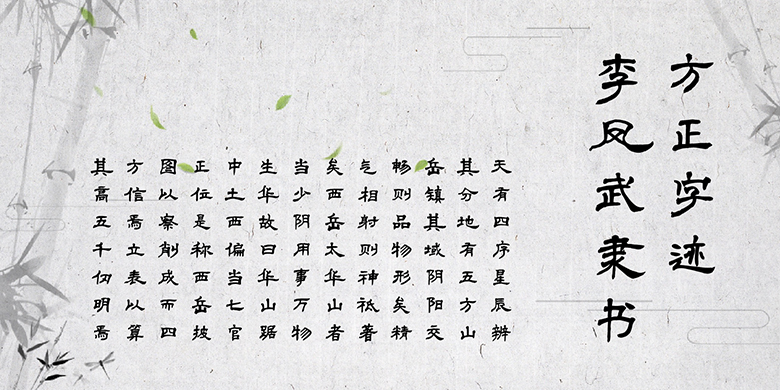 方正字迹
李凤武隶书
天有四序星辰辨
其分地有五方山
岳镇其域阴阳交
畅则品物形矣精
气相射则神祗著
矣西岳太华山者
当少阴用事万物
生华故曰华山踞
中土西偏当七官
正位是称西岳披
图以察削成而四
方信焉立表以算
其高五千仞明焉